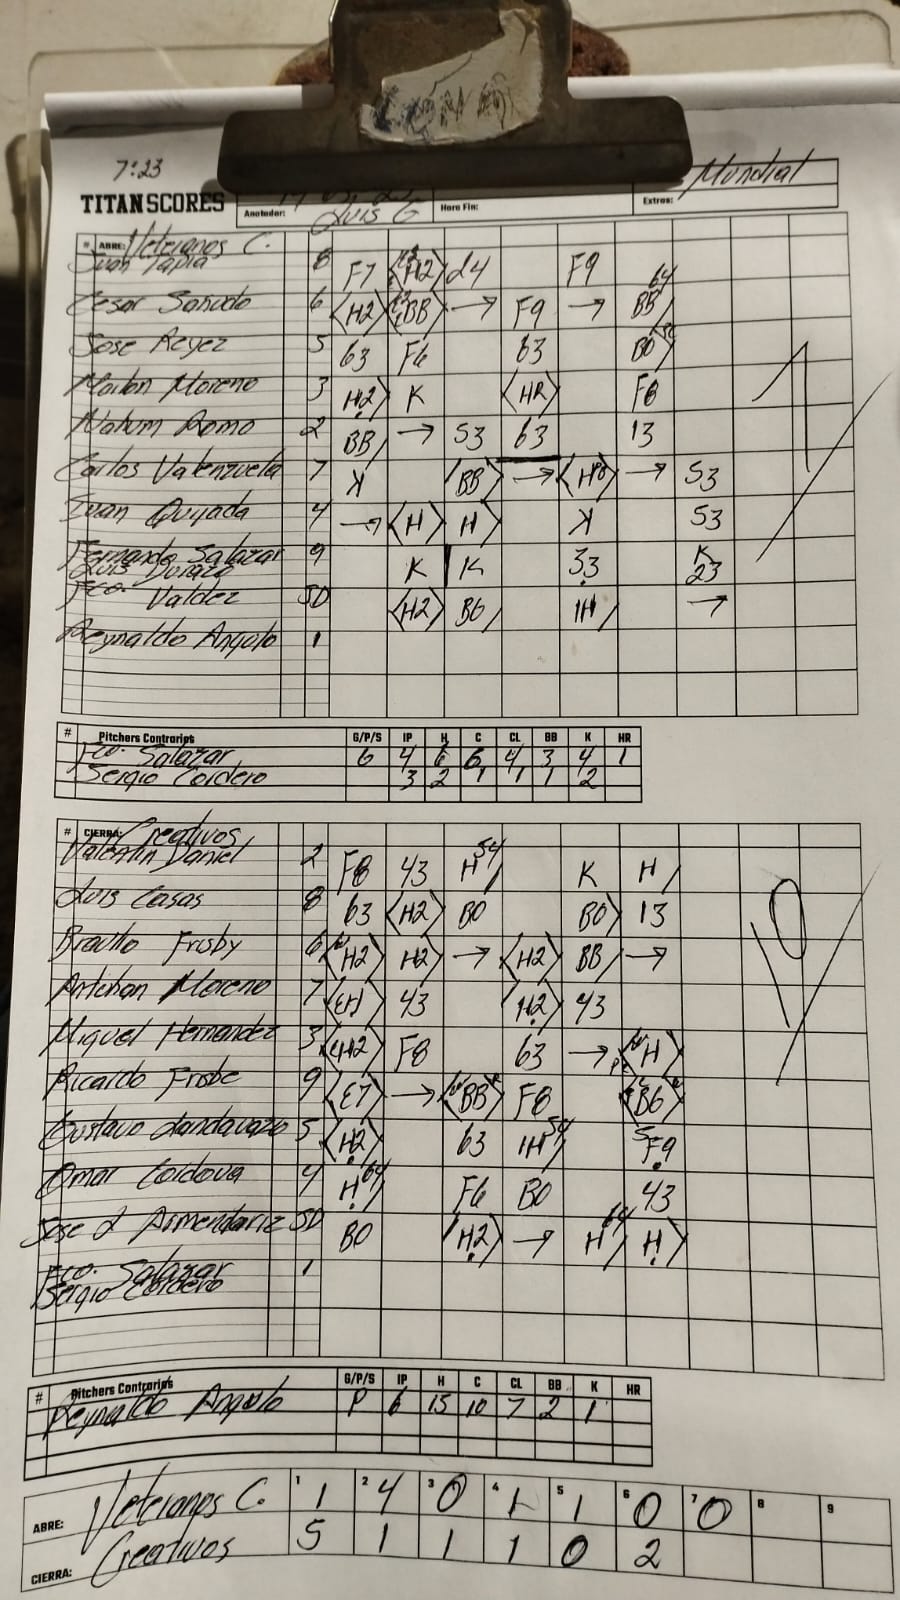 7:23
Mundial
TITAN SCORES Anotador: Luis G Hora Fin: Extras:
# ABRE: Veteranos C.
Juan Tapia 8 F7 H2 F9
Cesar Sañudo 6 H2 BB → F9 → BB 64
Jose Reyez 5 63 F6 63 BO
Marlon Moreno 3 H2 K HR F8
Nahum Romo 2 BB → 53 63 13
Carlos Valenzuela 7 K BB → → 53
Ivan Quijada 4 → H H K 53
Fernando Salazar 9 K K 33 K 23
Luis Durazo
Fco. Valdez SD H2 BG 1H →
Reynaldo Angulo 1
7
# Pitchers Contrarios G/P/S IP H C CL BB K HR
Fco. Salazar G 4 6 6 4 3 4 1
Sergio Cordero 3 2 1 1 1 2
# CIERRA: Creativos
Valentin Daniel 2 F8 43 H 54 K H
Luis Casas 8 63 H2 BO BO 13
Braulio Frisby 6 H2 H2 → H2 BB →
Moreno 7 43 H2 43
Miguel Hernandez 3 H2 F8 63 → H
Ricardo Frisbe 9 E7 → BB F8 BG
Gustavo 5 H2 63 1H 54 F9
Omar Cordova 4 H 64 F6 BO 43
Jose L Armendariz SD BO H2 → H 64 H
Fco. Salazar 1
Sergio Cordero
10
# Pitchers Contrarios G/P/S IP H C CL BB K HR
Reynaldo Angulo P 6 15 10 7 2 1
1 2 3 4 5 6 7 8 9
ABRE: Veteranos C. 1 4 0 1 1 0 0
CIERRA: Creativos 5 1 1 1 0 2